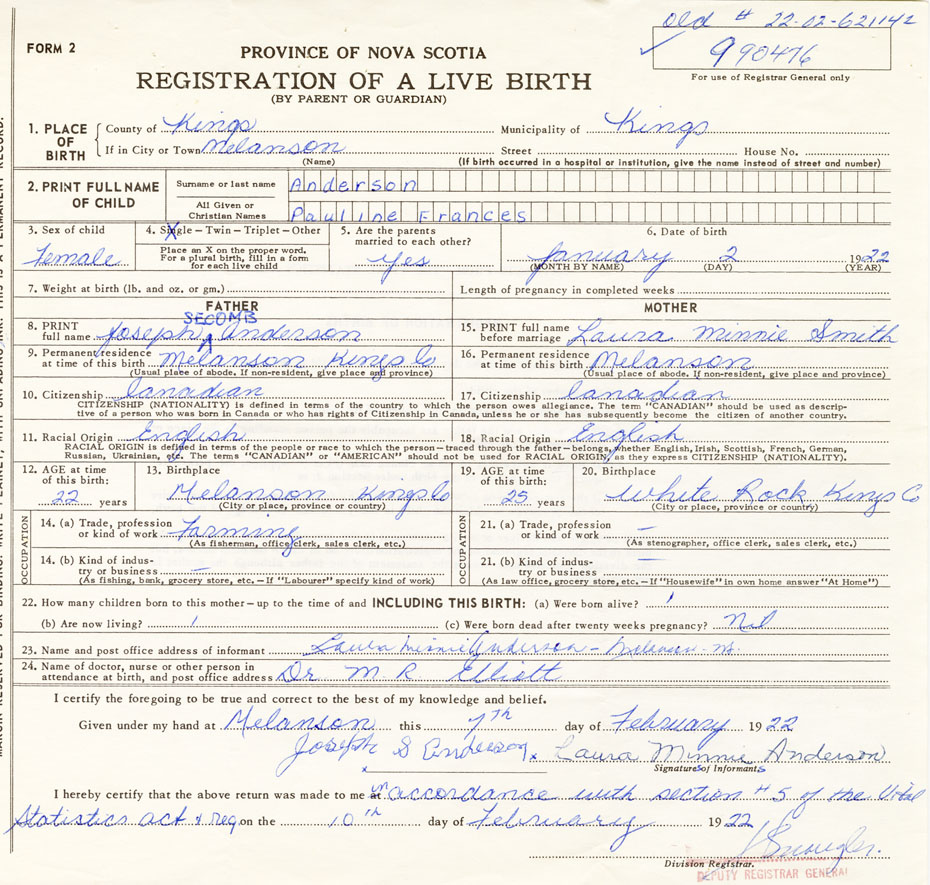 old # 22-02-621142
FORM 2
PROVINCE OF NOVA SCOTIA
✓ 990476
REGISTRATION OF A LIVE BIRTH
For use of Registrar General only
(BY PARENT OR GUARDIAN)
1. PLACE OF BIRTH { County of Kings Municipality of Kings
If in City or Town Melanson Street House No.
(Name) (If birth occurred in a hospital or institution, give the name instead of street and number)
2. PRINT FULL NAME OF CHILD Surname or last name Anderson
All Given or Christian Names Pauline Frances
3. Sex of child Female
4. Single – Twin – Triplet – Other X
Place an X on the proper word.
For a plural birth, fill in a form
for each live child
5. Are the parents married to each other? yes
6. Date of birth
January 2 1922
(MONTH BY NAME) (DAY) (YEAR)
7. Weight at birth (lb. and oz. or gm.) Length of pregnancy in completed weeks
FATHER MOTHER
8. PRINT full name Joseph SECOMB Anderson
15. PRINT full name before marriage Laura Minnie Smith
9. Permanent residence at time of this birth Melanson Kings Co
(Usual place of abode. If non-resident, give place and province)
16. Permanent residence at time of this birth Melanson
(Usual place of abode. If non-resident, give place and province)
10. Citizenship Canadian 17. Citizenship Canadian
CITIZENSHIP (NATIONALITY) is defined in terms of the country to which the person owes allegiance. The term "CANADIAN" should be used as descrip-
tive of a person who was born in Canada or who has rights of Citizenship in Canada, unless he or she has subsequently become the citizen of another country.
11. Racial Origin English 18. Racial Origin English
RACIAL ORIGIN is defined in terms of the people or race to which the person – traced through the father – belongs, whether English, Irish, Scottish, French, German,
Russian, Ukrainian, etc. The terms "CANADIAN" or "AMERICAN" should not be used for RACIAL ORIGIN as they express CITIZENSHIP (NATIONALITY).
12. AGE at time of this birth: 22 years
13. Birthplace Melanson Kings Co
(City or place, province or country)
19. AGE at time of this birth: 25 years
20. Birthplace White Rock Kings Co
(City or place, province or country)
OCCUPATION
14. (a) Trade, profession or kind of work Farming
(As fisherman, office clerk, sales clerk, etc.)
14. (b) Kind of indus-
try or business –
(As fishing, bank, grocery store, etc. – If "Labourer" specify kind of work)
OCCUPATION
21. (a) Trade, profession or kind of work –
(As stenographer, office clerk, sales clerk, etc.)
21. (b) Kind of indus-
try or business –
(As law office, grocery store, etc. – If "Housewife" in own home answer "At Home")
22. How many children born to this mother – up to the time of and INCLUDING THIS BIRTH: (a) Were born alive? 1
(b) Are now living? 1 (c) Were born dead after twenty weeks pregnancy? Nil
23. Name and post office address of informant Laura Minnie Anderson – Melanson N.S.
24. Name of doctor, nurse or other person in
attendance at birth, and post office address Dr M. R Elliott
I certify the foregoing to be true and correct to the best of my knowledge and belief.
Given under my hand at Melanson this 7th day of February 1922
Joseph S Anderson x Laura Minnie Anderson
x Signatures of Informants
I hereby certify that the above return was made to me at in accordance with section # 5 of the Vital
Statistics act & reg on the 10th day of February 1922
Division Registrar.
DEPUTY REGISTRAR GENERAL